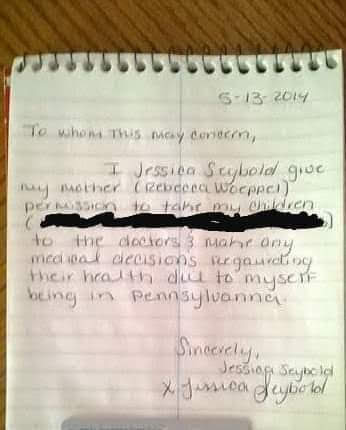 5-13-2014
To whom This may concern,
I Jessica Seybold give
my mother (Rebecca Woeppel)
permission to take my children
(
)
to the doctors & make any
medical decisions regaurding
their health due to myself
being in Pennsylvanner.
Sincerely,
Jessica Seybold
x Jessica Seybold